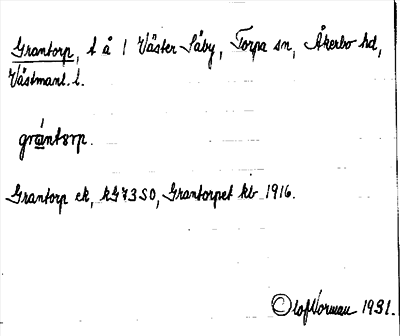 Grantorp, t å 1 Väster-Såby, Torpa sn, Åkerbo hd,
Västmanl. l.
grántørp.
Grantorp ek, kG73SO, Grantorpet kb 1916.
Olof Norman 1931.